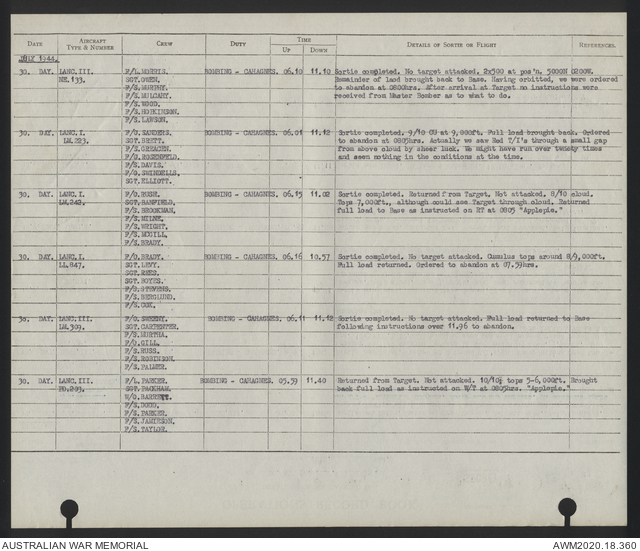 DATE AIRCRAFT TYPE & NUMBER CREW DUTY TIME UP DOWN DETAILS OF SORTIE OR FLIGHT REFERENCES.
JULY 1944.
30. DAY. LANC.III. F/L. BOMBING - CAHAGNES. 06.10 11.10 Sortie completed. No target attacked. 2x500 at pos'n. 5000N 0200W.
NE.133. SGT.OWEN. Remainder of load brought back to Base. Having orbited, we were ordered
F/S.MURPHY. to abandon at 0800hrs. After arrival at Target no instructions were
F/S.MULCAHY. received from Master Bomber as to what to do.
F/S.WOOD.
F/S.HOPKINSON.
F/S.LAWSON.
30. DAY. LANC.I. F/O.SANDERS. BOMBING - CAHAGNES. 06.01 11.12 Sortie completed. 9/10 CU at 9,000ft. Full load brought back. Ordered
LM.223. SGT.BRETT. to abandon at 0805hrs. Actually we saw Red T/I's through a small gap
F/S. from above cloud by sheer luck. We might have run over twenty times
F/S.ROSENFELD. and seen nothing in the conditions at the time.
F/S.DAVIS.
F/O.SWINDELLS.
SGT.ELLIOTT.
30. DAY. LANC.I. F/O. BOMBING - CAHAGNES. 06.15 11.02 Sortie completed. Returned from Target. Not attacked. 8/10 cloud.
LM.242. SGT.BANFIELD. Tops 7,000ft., although could see Target through cloud. Returned
F/S.BROOKMAN. full load to Base as instructed on RT at 0805 "Applepie."
F/S.MILNE.
F/S.WRIGHT.
F/S.MCGILL.
F/S.BRADY.
30. DAY. LANC.I. F/O.BRADY. BOMBING - CAHAGNES. 06.16 10.57 Sortie completed. No target attacked. Cumulus tops around 8/9,000ft.
LL.847. SGT.LEVY. Full load returned. Ordered to abandon at 07.59hrs.
SGT.
SGT.NOYES.
F/S.STEVENS.
F/S.BERGLUND.
F/S.COX.
30. DAY. LANC.III. F/O.SWEENY. BOMBING - CAHAGNES. 06.11 11.12 Sortie completed. No target attacked. Full load returned to Base
LM.309. SGT.CARPENTER. following instructions over 11.96 to abandon.
F/O.MURTHA.
F/O.GILL.
F/S.RUSS.
F/S.ROBINSON.
F/S.PALMER.
30. DAY. LANC.III. F/L.PARKER. BOMBING - CAHAGNES. 05.59 11.40 Returned from Target. Not attacked. 10/10 tops 5-6,000ft. Brought
PD.203. SGT.PACKHAM. back full load as instructed on W/T at 0805hrs. "Applepie."
W/O.BARRETT.
F/S.DODD.
F/S.PARKER.
F/S.JAMIESON.
F/S.TAYLOR.
AUSTRALIAN WAR MEMORIAL AWM2020.18.360